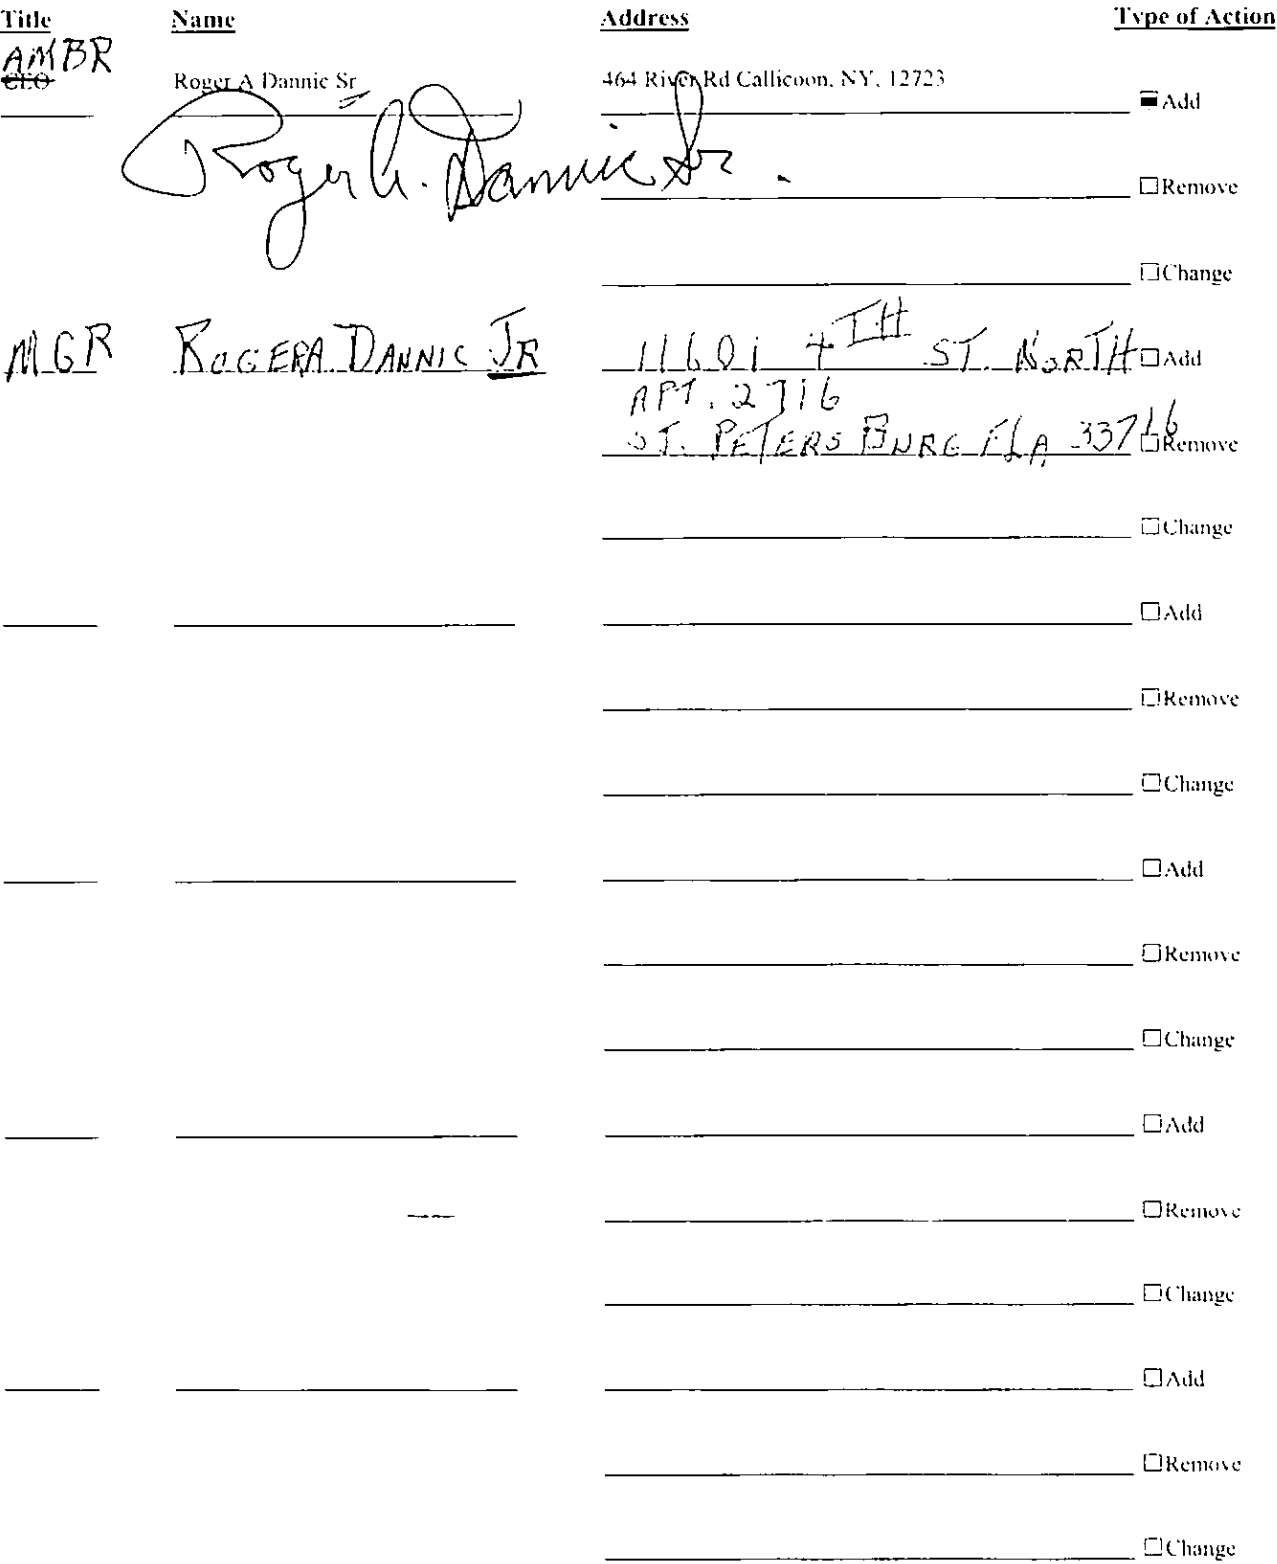 Title Name Address Type of Action
AMBR
CEO Roger A Dannic Sr 464 River Rd Callicoon, NY, 12723
Add
Roger A. Dannic Sr.
Remove
Change
MGR ROGER A. DANNIC JR 11601 4TH ST. NORTH Add
APT. 2716
ST. PETERS BURG FLA 33716 Remove
Change
Add
Remove
Change
Add
Remove
Change
Add
Remove
Change
Add
Remove
Change